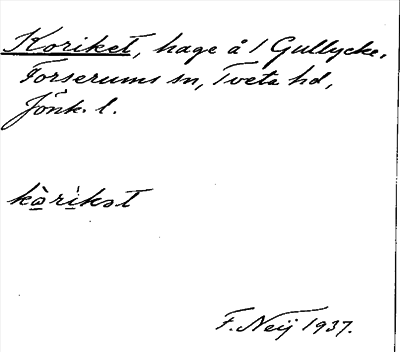 Koriket, hage å 1 Gullycke.
Forserums sn, Tveta hd,
Jönk. l.
kò̲rìkət
F. Neij 1937.